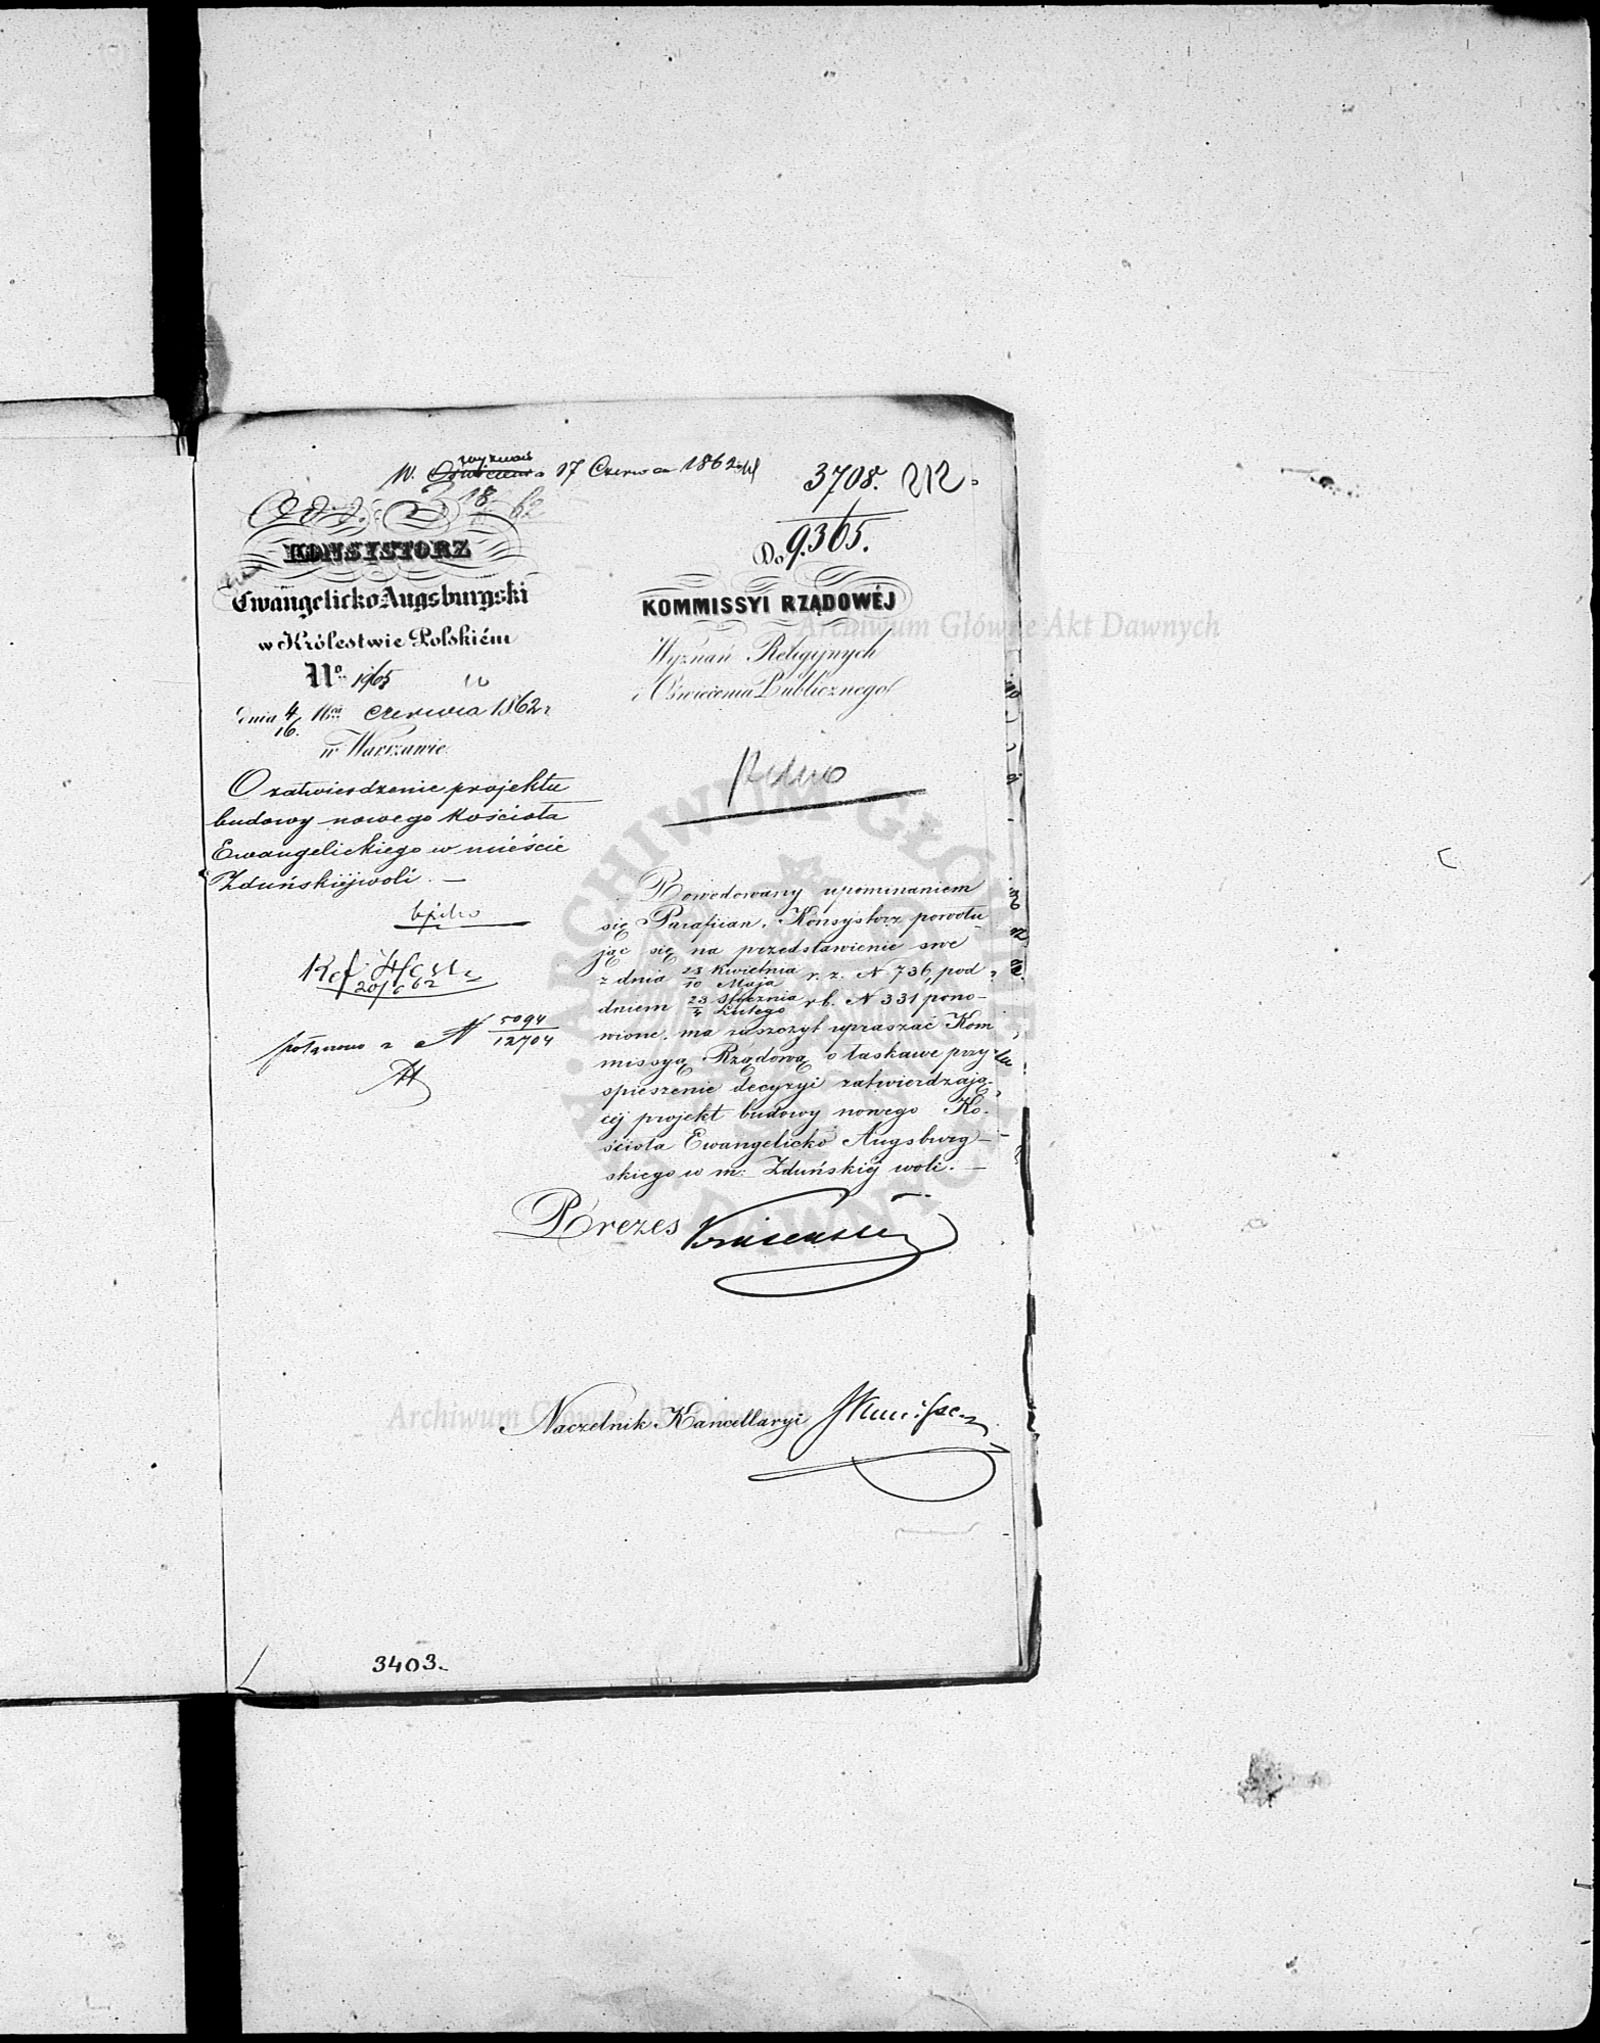 wyznań
W. Oświecenia 17 Czerwca 1862
3708. 212.
9365.
Do
18 62
KONSYSTORZ
Ewangelicko Augsburgski
w Królestwie Polskiém
No 1965
dnia 4/16. Czerwca 1862 r
w Warszawie
O zatwierdzenie projektu
budowy nowego kościoła
Ewangelickiego w mieście
Zduńskiéjwoli. —
Ref.
20/6 62
N 5094/12704
KOMMISSYI RZĄDOWÉJ
Wyznań Religijnych
i Oświecenia Publicznego
Powodowany upominaniem
się Parafian, Konsystorz powołu-
jąc się na przedstawienie swe
z dnia 28 Kwietnia/10 Maja r. z. N 736, pod
dniem 23 Stycznia/4 Lutego r. b. N 331 pono-
wione, ma zaszczyt upraszać Kom
missyą Rządową o łaskawe przy-
spieszenie decyzyi zatwierdzają-
cej projekt budowy nowego Ko-
ścioła Ewangelicko Augsburg-
skiego w m: Zduńskiéj woli. —
Prezes
Naczelnik Kancellaryi
3403.
Archiwum Główne Akt Dawnych
Archiwum Główne Akt Dawnych
ARCHIWUM GŁÓWNE AKT DAWNYCH